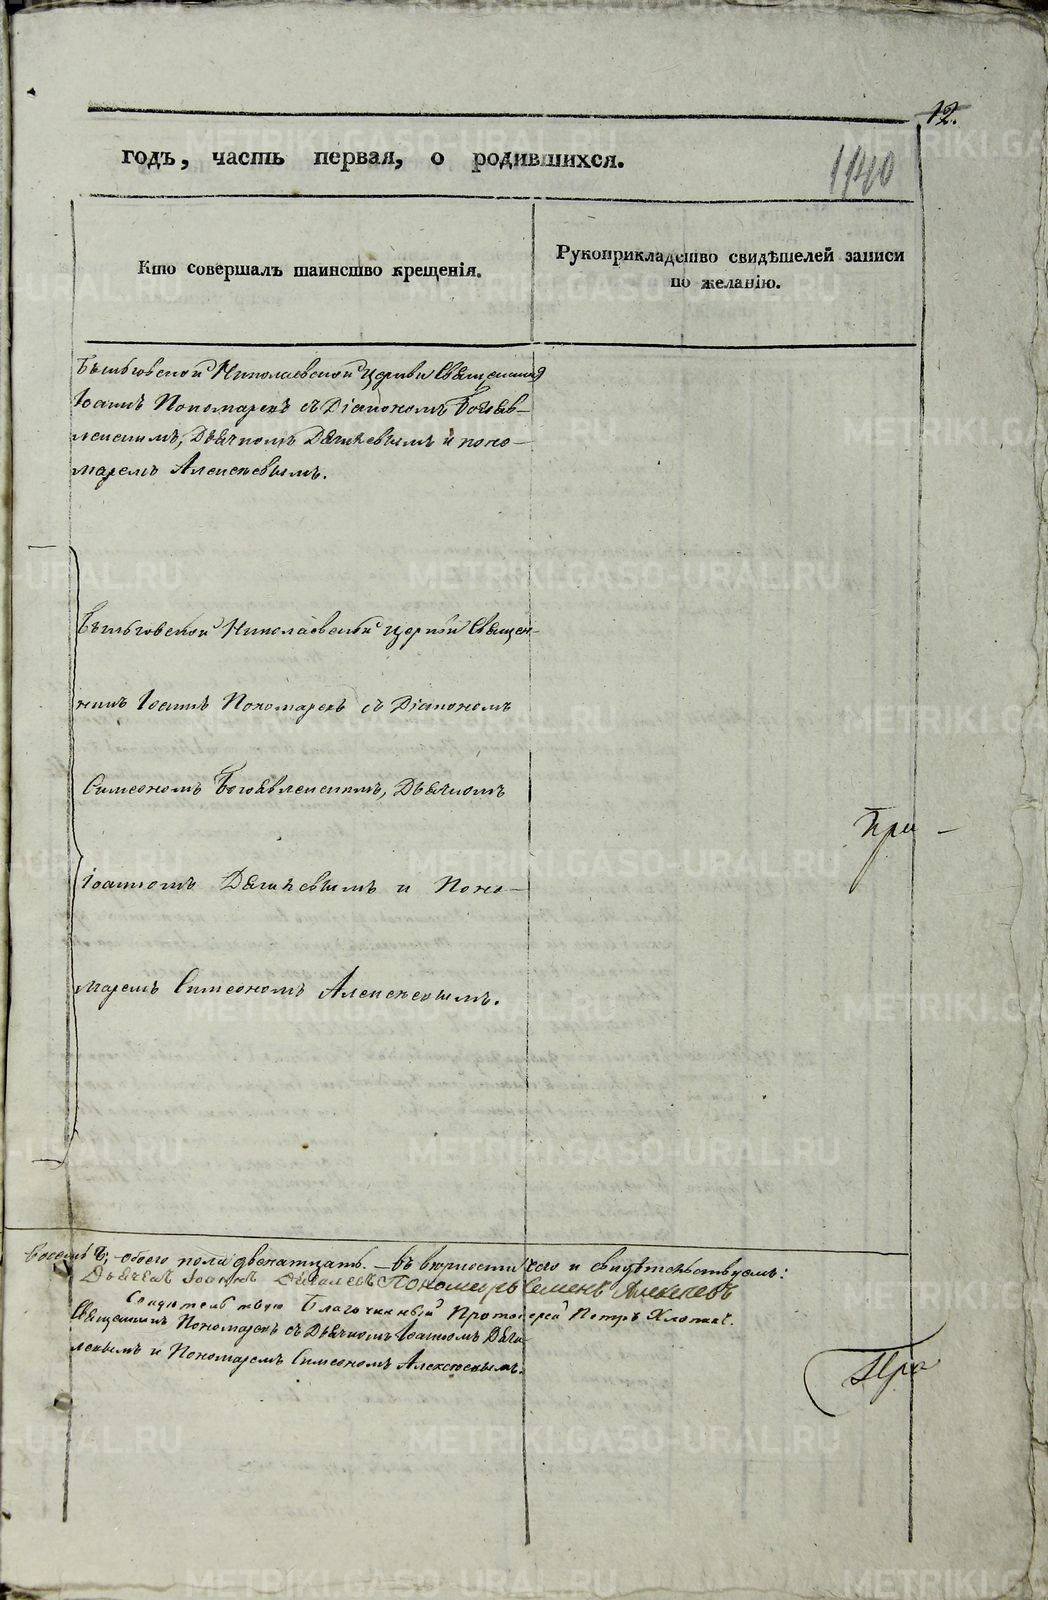 12.
годъ, часть первая, о родившихся.
1140
Кто совершалъ таинство крещенія.
Рукоприкладство свидѣтелей записи
по желанію.
Николаевской церкви Священникъ
Іоаннъ Пономаревъ съ Діакономъ Богояв-
ленскимъ, Дьячкомъ и поно-
маремъ Алексѣевымъ.
Николаевской церкви Священ-
никъ Іоаннъ Пономаревъ съ Діакономъ
Симеономъ Богоявленскимъ, Дьячкомъ
Іоанномъ и Поно-
маремъ Симеономъ Алексѣевымъ.
При
обоего пола двенатцать. – Въ вѣрности чего и свидѣтельствуемъ:
Дьячекъ Іоаннъ Пономарь Семенъ Алексеевъ
Благочинный Протоіерей Петръ
Священникъ Пономаревъ съ Дьячкомъ Іоанномъ
и Пономаремъ Симеономъ Алексѣевымъ.
METRIKI.GASO-URAL.RU